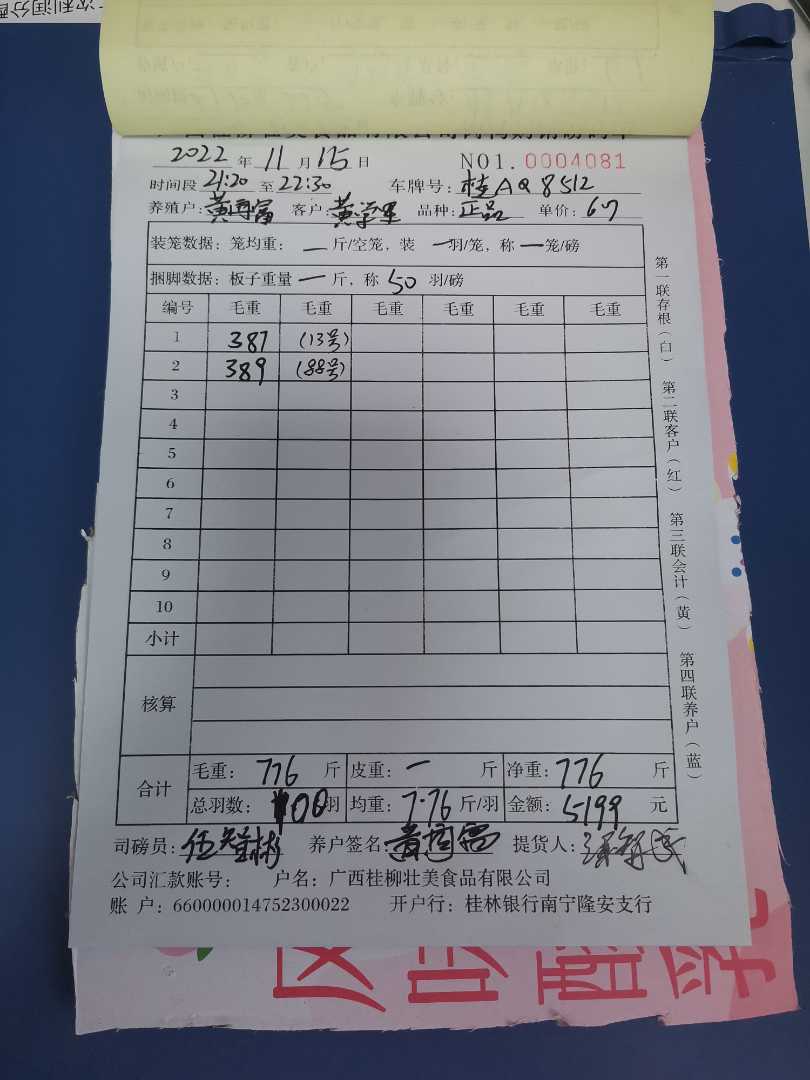 次利润分配
2022年11月15日 NO1.0004081
时间段21:20至22:30 车牌号:桂AQ8512
养殖户: 客户: 品种:正品 单价:6.7
装笼数据:笼均重:一斤/空笼,装一羽/笼,称一笼/磅
捆脚数据:板子重量一斤,称50羽/磅
编号 毛重 毛重 毛重 毛重 毛重 毛重
1 387 (13号)
2 389 (88号)
3
4
5
6
7
8
9
10
小计
核算
合计 毛重:776斤 皮重:一斤 净重:776斤
总羽数:100羽 均重:7.76斤/羽 金额:5199元
司磅员: 养户签名: 提货人:
公司汇款账号: 户名:广西桂柳壮美食品有限公司
账户:660000014752300022 开户行:桂林银行南宁隆安支行
第一联存根(白) 第二联客户(红) 第三联会计(黄) 第四联养户(蓝)